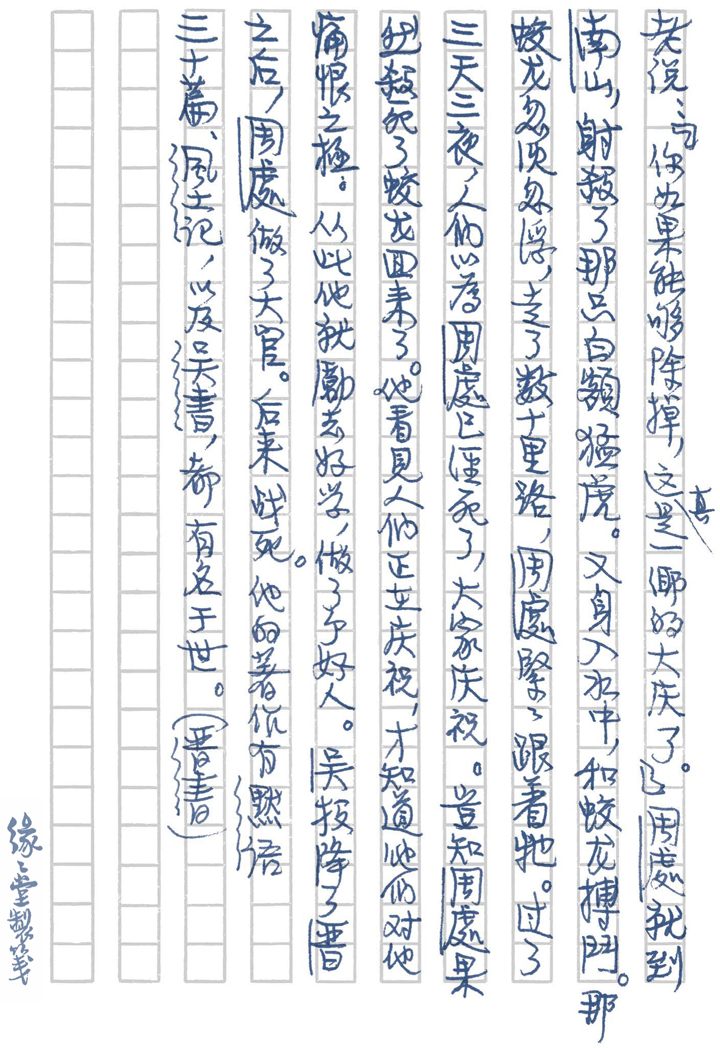 老说：“你如果能够除掉，这真是一郷的大庆了。”周處就到
南山，射殺了那只白额猛虎。又身入水中，和蛟龙搏鬥。那
蛟龙忽沉忽浮，走了数十里路，周處緊々跟着牠。过了
三天三夜，人们以為周處已經死了，大家庆祝。豈知周處果
然殺死了蛟龙回来了。他看見人们正在庆祝，才知道他们对他
痛恨之極。从此他就勵志好学，做了个好人。吴投降了晋
之后，周處做了大官。后来战死。他的著作有黙语
三十篇、風土记，以及吴書，都有名于世。（晋書）
緣々堂製箋